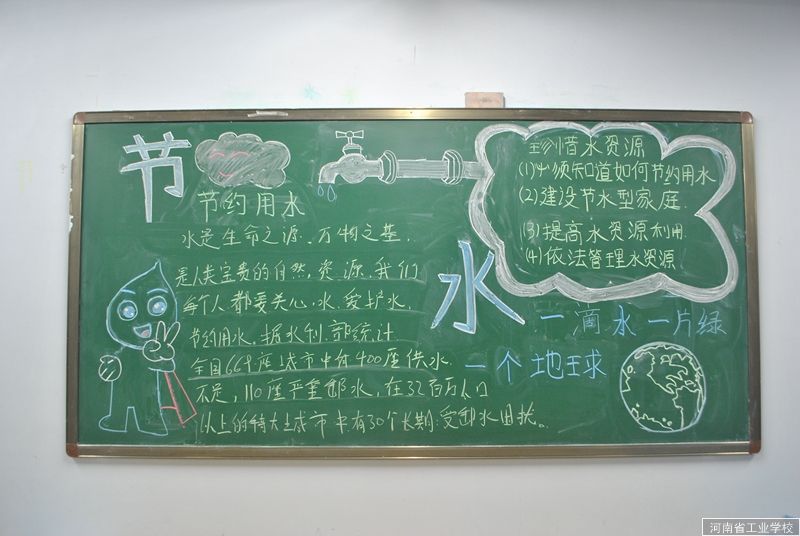 节
节约用水
水是生命之源、万物之基.
是人类宝贵的自然资源.我们
每个人都要关心水.爱护水.
节约用水.据水利部统计
全国669座城市中有400座供水
不足，110座严重缺水，在32百万人口
以上的特大城市中有30个长期受缺水困扰。
水
珍惜水资源
(1)必须知道如何节约用水
(2)建设节水型家庭.
(3)提高水资源利用
(4)依法管理水资源
一滴水一片绿
一个地球
河南省工业学校